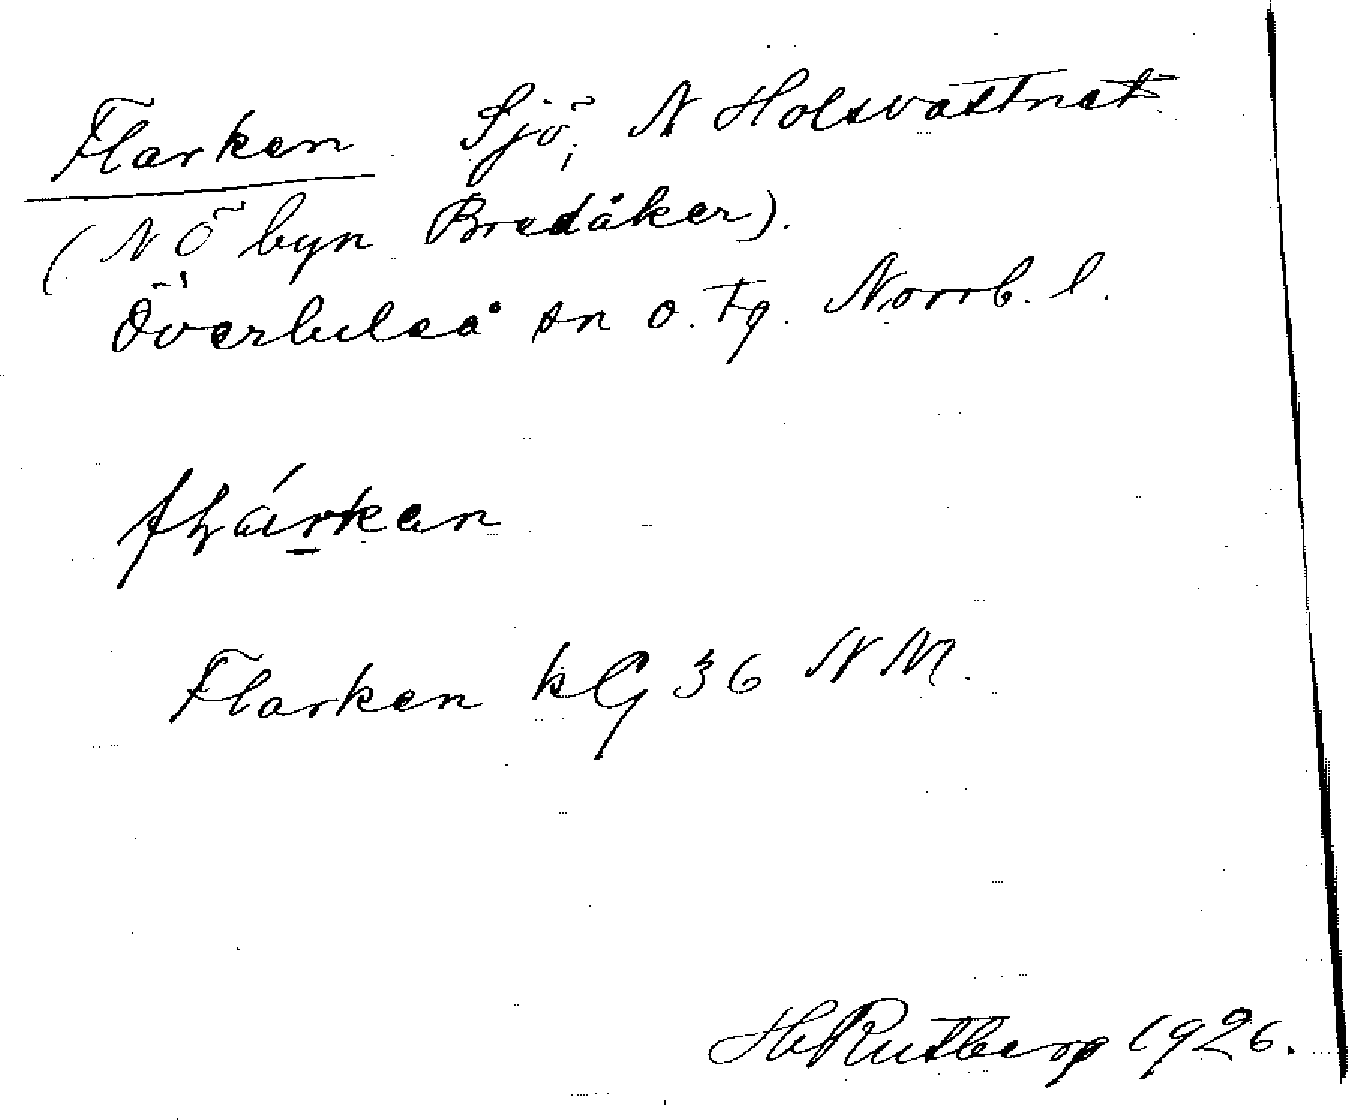 Flarken Sjö, N Holsvattnet
(N Ö byn Bredåker).
Överluleå sn o. tg. Norrb. l.
fḷárkan
Flarken kG 36 NM.
H Rutberg 1926.